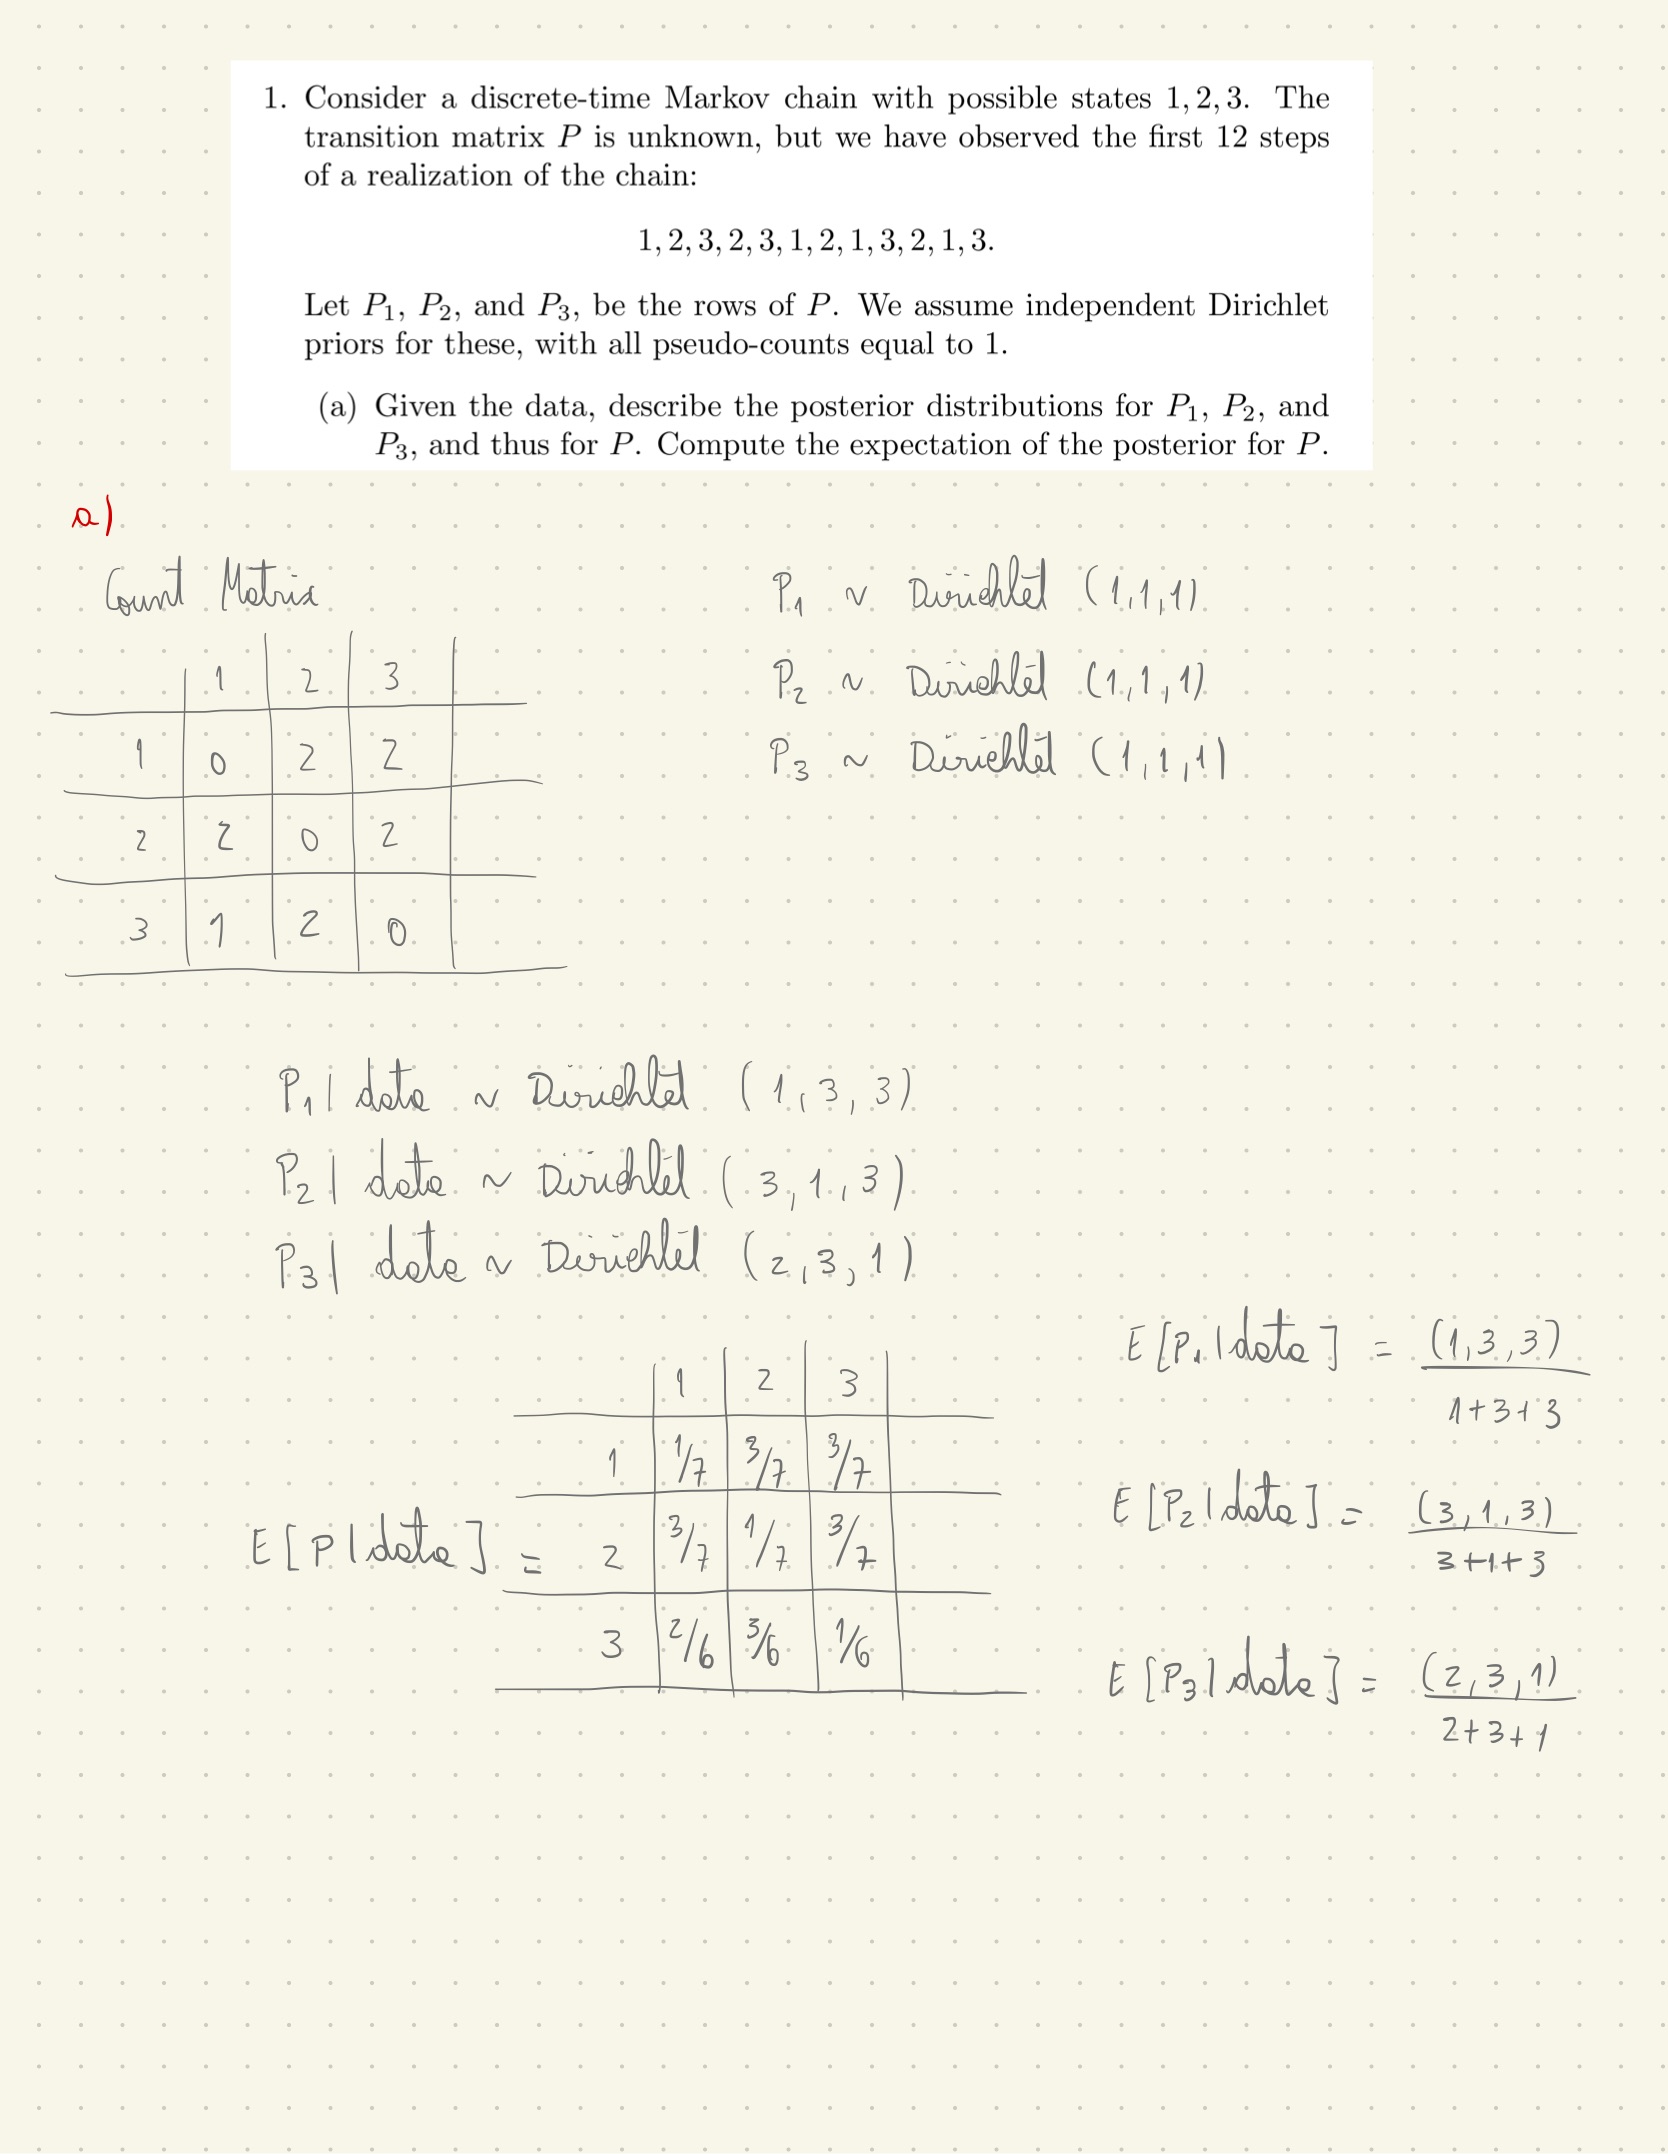 1. Consider a discrete-time Markov chain with possible states 1, 2, 3. The
transition matrix P is unknown, but we have observed the first 12 steps
of a realization of the chain:
1, 2, 3, 2, 3, 1, 2, 1, 3, 2, 1, 3.
Let P₁, P₂, and P₃, be the rows of P. We assume independent Dirichlet
priors for these, with all pseudo-counts equal to 1.
(a) Given the data, describe the posterior distributions for P₁, P₂, and
P₃, and thus for P. Compute the expectation of the posterior for P.
a)
Count Matrix
1 2 3
1 0 2 2
2 2 0 2
3 1 2 0
P₁ ~ Dirichlet (1,1,1)
P₂ ~ Dirichlet (1,1,1)
P₃ ~ Dirichlet (1,1,1)
P₁ | data ~ Dirichlet (1,3,3)
P₂ | data ~ Dirichlet (3,1,3)
P₃ | data ~ Dirichlet (2,3,1)
E[P|data] =
1 2 3
1 1/7 3/7 3/7
2 3/7 1/7 3/7
3 2/6 3/6 1/6
E[P₁|data] = (1,3,3)
1+3+3
E[P₂|data] = (3,1,3)
3+1+3
E[P₃|data] = (2,3,1)
2+3+1